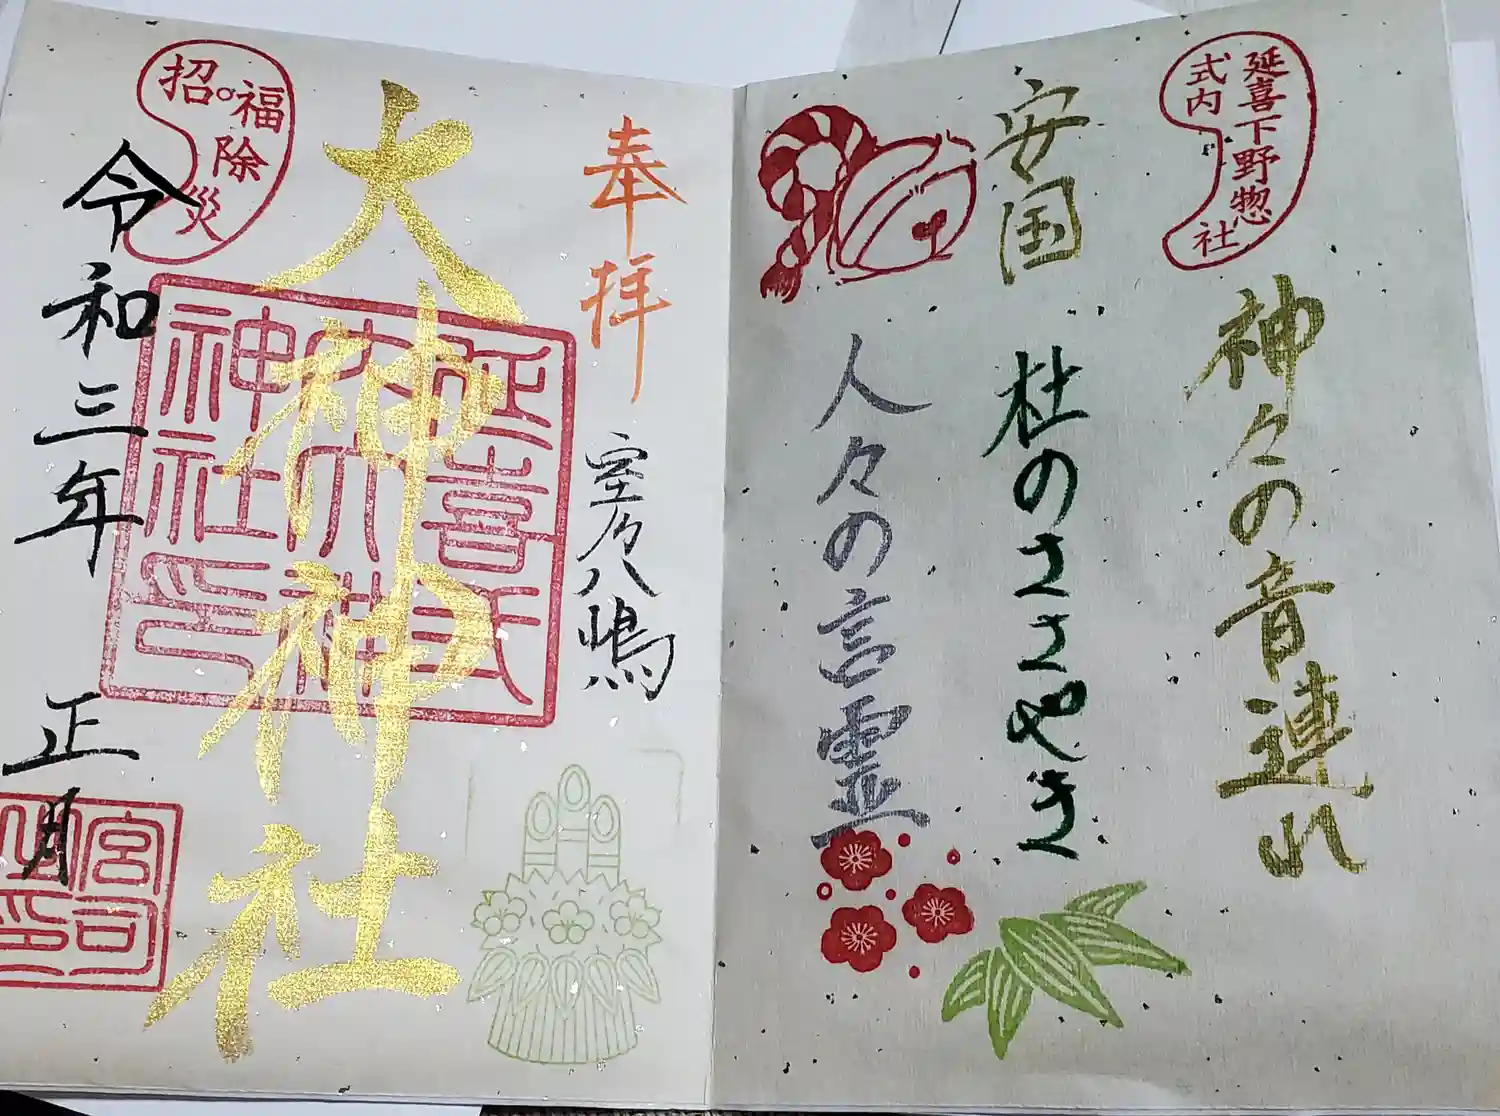 延喜
式内
下野惣社
神々の音連れ
安国
杜のささやき
人々の言霊
奉拝
室乃八嶋
大神神社
延喜式
内大神
神社印
招福除災
令和三年 正月
宮司
之印